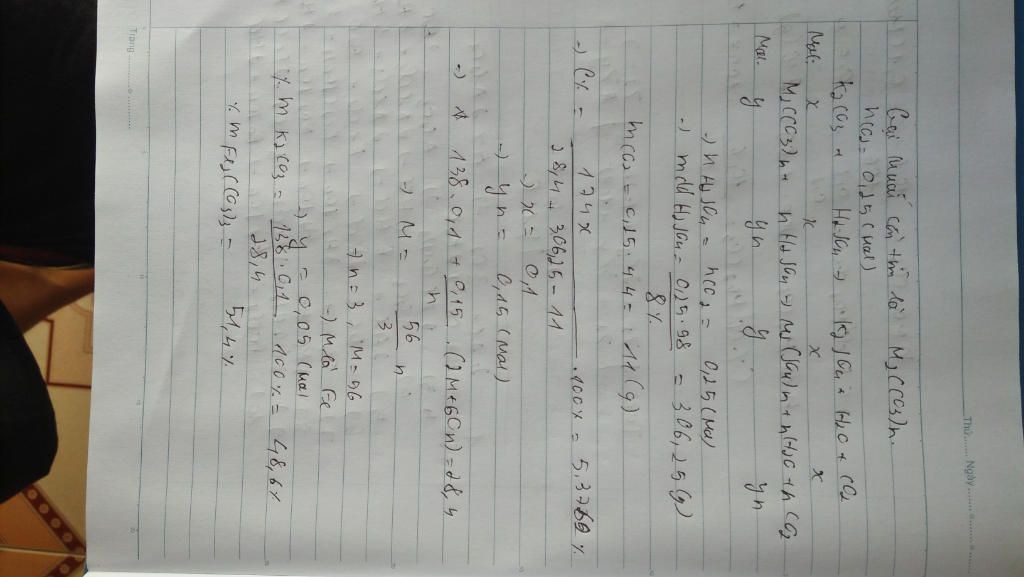 Thứ....... Ngày .......
Trang
Gọi Muối cần tìm là M₂(CO₃)n.
nCO₂ = 0,25 (mol)
K₂CO₃ + H₂SO₄ → K₂SO₄ + H₂O + CO₂
Mol: x x x x
M₂(CO₃)n + nH₂SO₄ → M₂(SO₄)n + nH₂O + nCO₂
Mol: y yn y yn
→ nH₂SO₄ = nCO₂ = 0,25 (mol)
→ mdd H₂SO₄ = 0,25.98 / 8% = 306,25(g)
mCO₂ = 0,25.44 = 11(g)
→ C% = 174x / 28,4 + 306,25 - 11 .100% = 5,3752%
→ x = 0,1
→ yn = 0,15 (mol)
→ 138.0,1 + 0,15/n . (2M+60n) = 28,4
→ M = 56/3 n
→ n = 3, M = 56
→ M là Fe
→ y = 0,05 (mol
% m K₂CO₃ = 138.0,1 / 28,4 .100% = 48,6%
% m Fe₂(CO₃)₃ = 51,4%